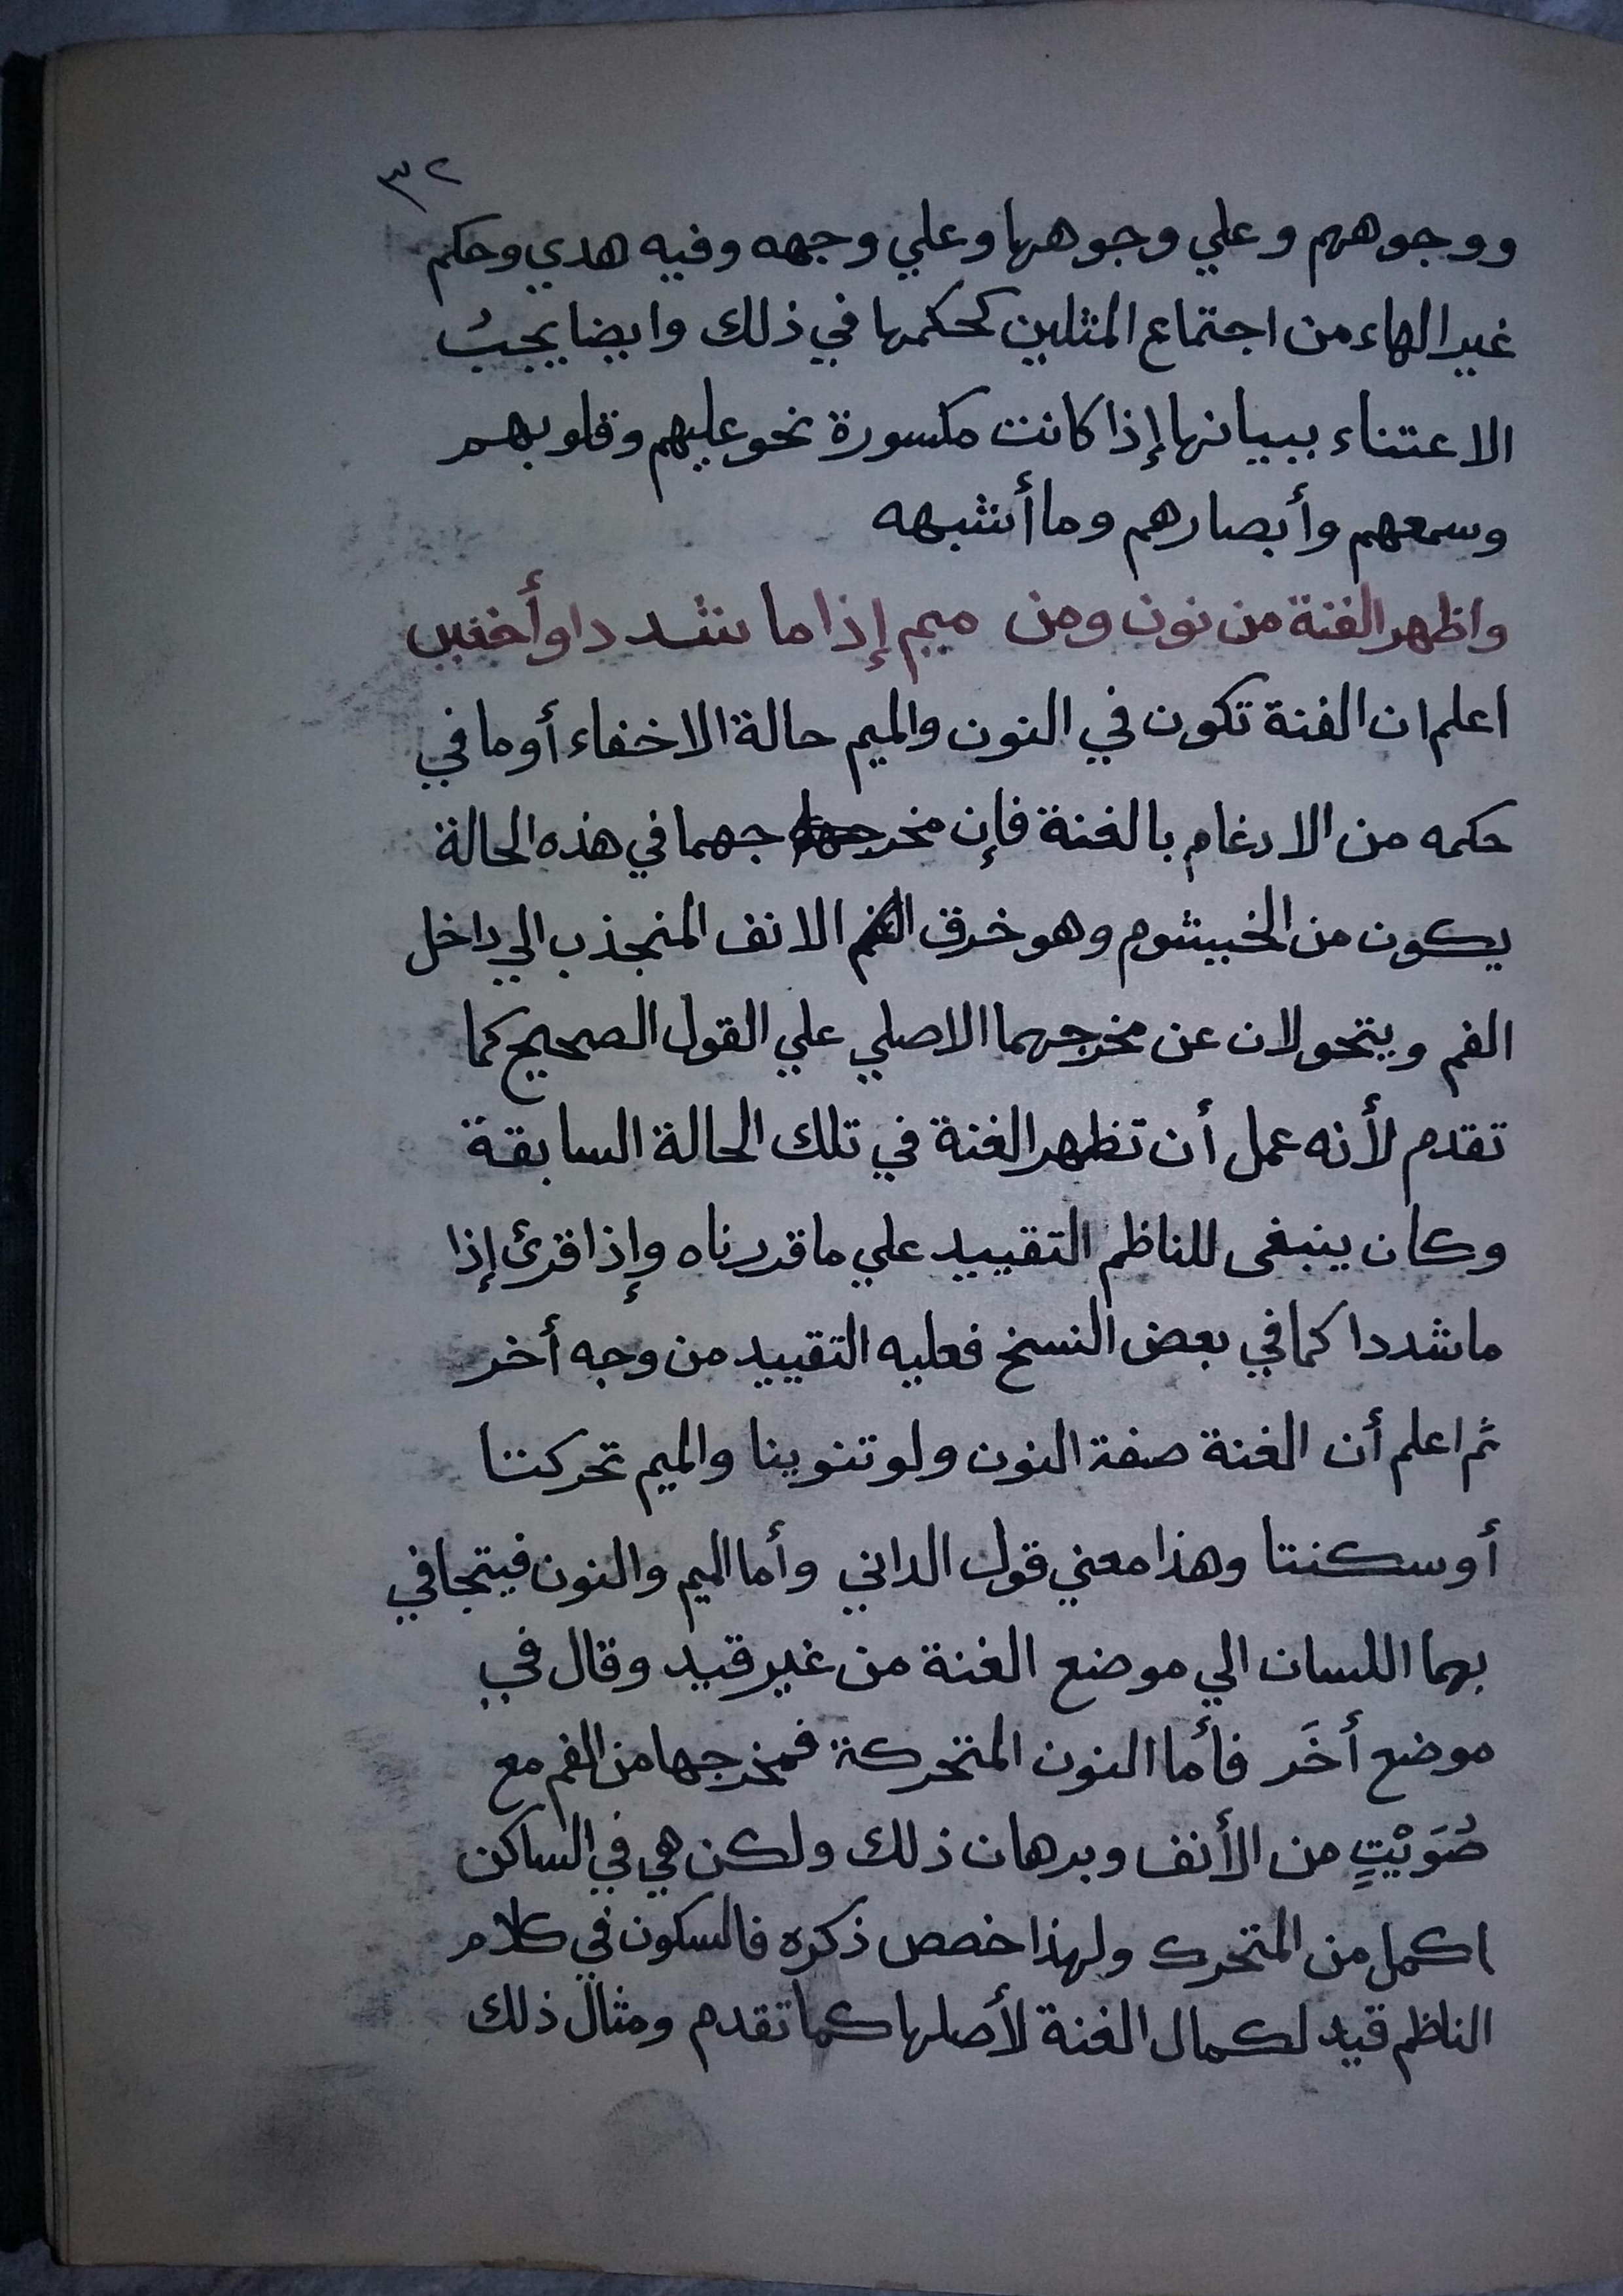 ٣٢
ووجوههم وعلي وجوهها وعلي وجهه وفيه هدي وحكم
غير الهاء من اجتماع المثلين كحكمها في ذلك وايضا يجبُ
الاعتناء ببيانها إذا كانت مكسورة نحو عليهم وقلوبهم
وسمعهم وأبصارهم وما أشبهه
واظهر الغنة من نون ومن ميم إذا ما شددا وأخفين
اعلم ان الغنة تكون في النون والميم حالة الاخفاء أو ما في
حكمه من الادغام بالغنة فإن مخرجهما في هذه الحالة
يكون من الخيشوم وهو خرق الانف المنجذب الي داخل
الفم ويتحولان عن مخرجهما الاصلي علي القول الصحيح كما
تقدم لأنه عمل أن تظهر الغنة في تلك الحالة السابقة
وكان ينبغى للناظم التقييد علي ما قررناه وإذا قرئ إذا
ما شددا كما في بعض النسخ فعليه التقييد من وجه أخر
ثم اعلم أن الغنة صفة النون ولو تنوينا والميم تحركتا
أو سكنتا وهذا معني قول الداني وأما الميم والنون فيتجافي
بهما اللسان الي موضع الغنة من غير قيد وقال في
موضع أخَر فأما النون المتحركة فمخرجها من الفم مع
صُوَيْتٍ من الأنف وبرهان ذلك ولكن هي في الساكن
اكمل من المتحرك ولهذا خصص ذكره فالسكون في كلام
الناظم قيد لكمال الغنة لأصلها كما تقدم ومثال ذلك